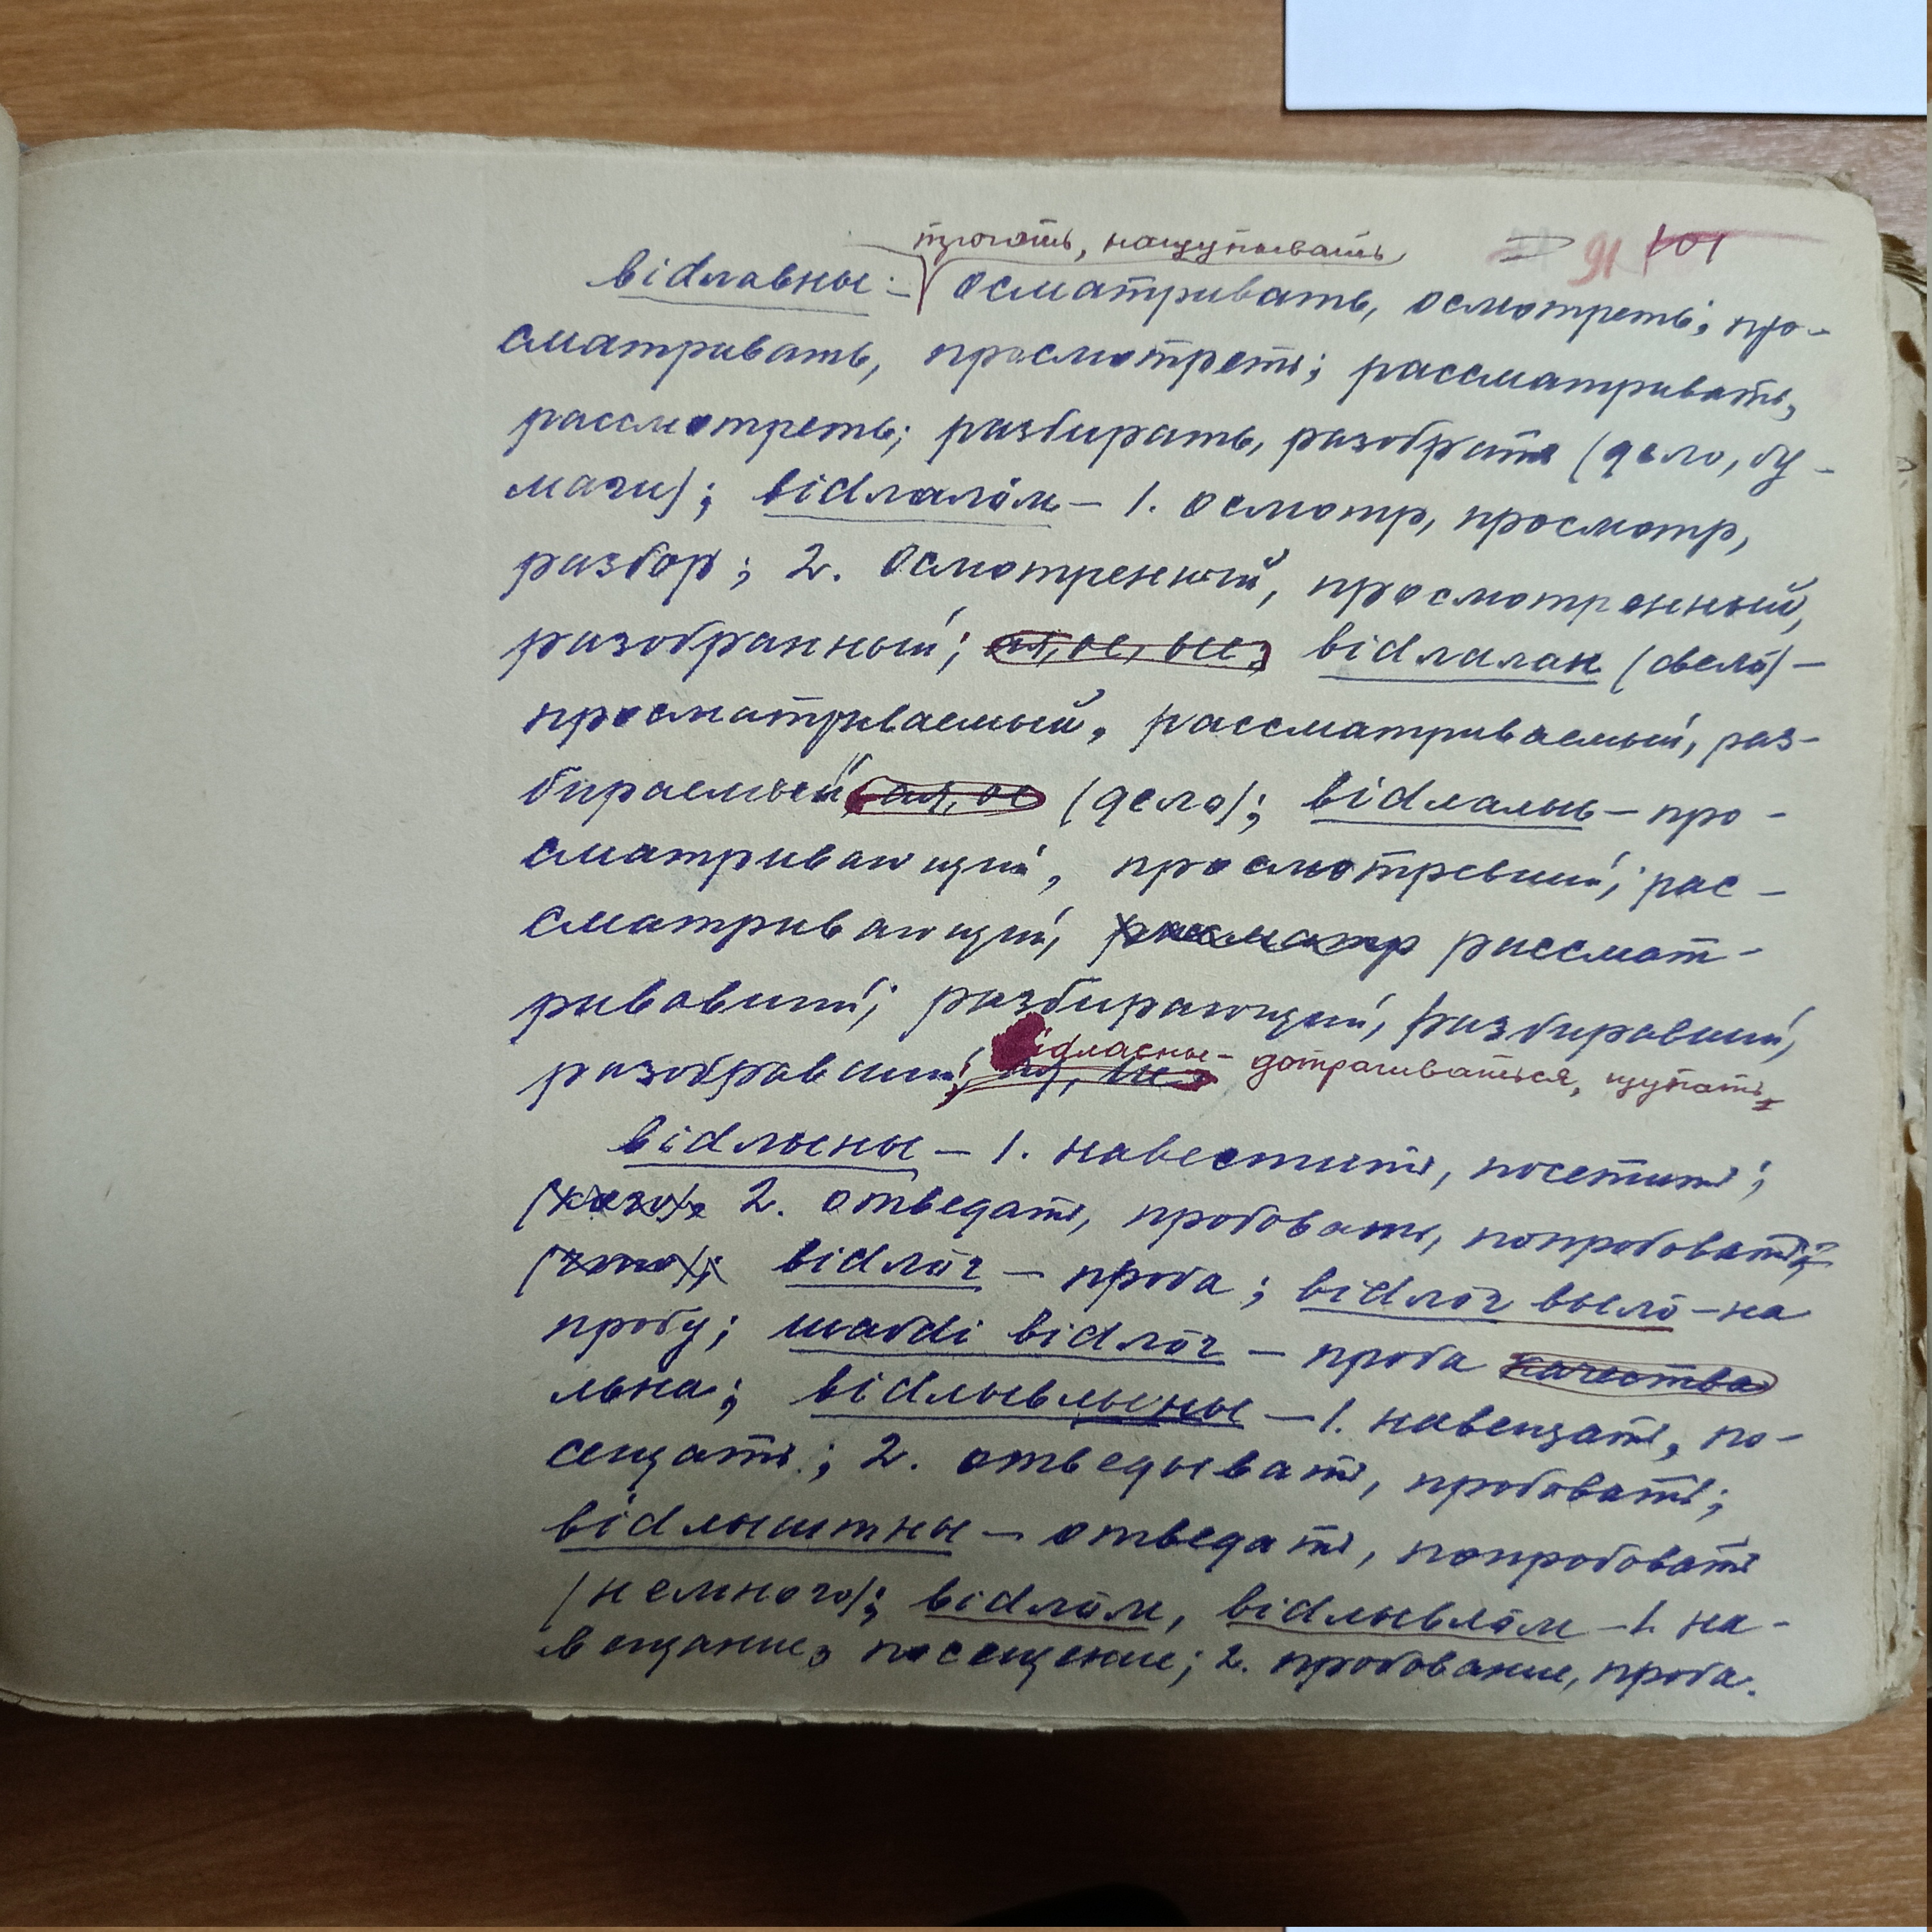 трогать, нащупывать
91 101
відлавны — осматривать, осмотреть; про-
сматривать, просмотреть; рассматривать,
рассмотреть; разбирать, разобрать (дело, бу-
маги); відлалӧм — 1. осмотр, просмотр,
разбор; 2. осмотренный, просмотренный,
разобранный; ая, ое, ые; відлалан (делӧ) —
просматриваемый, рассматриваемый, раз-
бираемый, ая, ое (дело); відлалысь — про-
сматривающий, просмотревший; рас-
сматривающий, рассматр рассмат-
ривавший; разбирающий, разбиравший,
відласны — дотрагиваться, щупать
разобравший; ая, ые;
відлыны — 1. навестить, посетить;
(кого); 2. отведать, пробовать, попробовать;
(чего); відлӧг — проба; відлӧг вылӧ — на
пробу; шабді відлӧг — проба качества
льна; відлывлыны — 1. навещать, по-
сещать; 2. отведывать, пробовать;
відлыштны — отведать, попробовать
(немного); відлӧм, відлывлӧм — 1. на-
вещание, посещение; 2. пробование, проба.